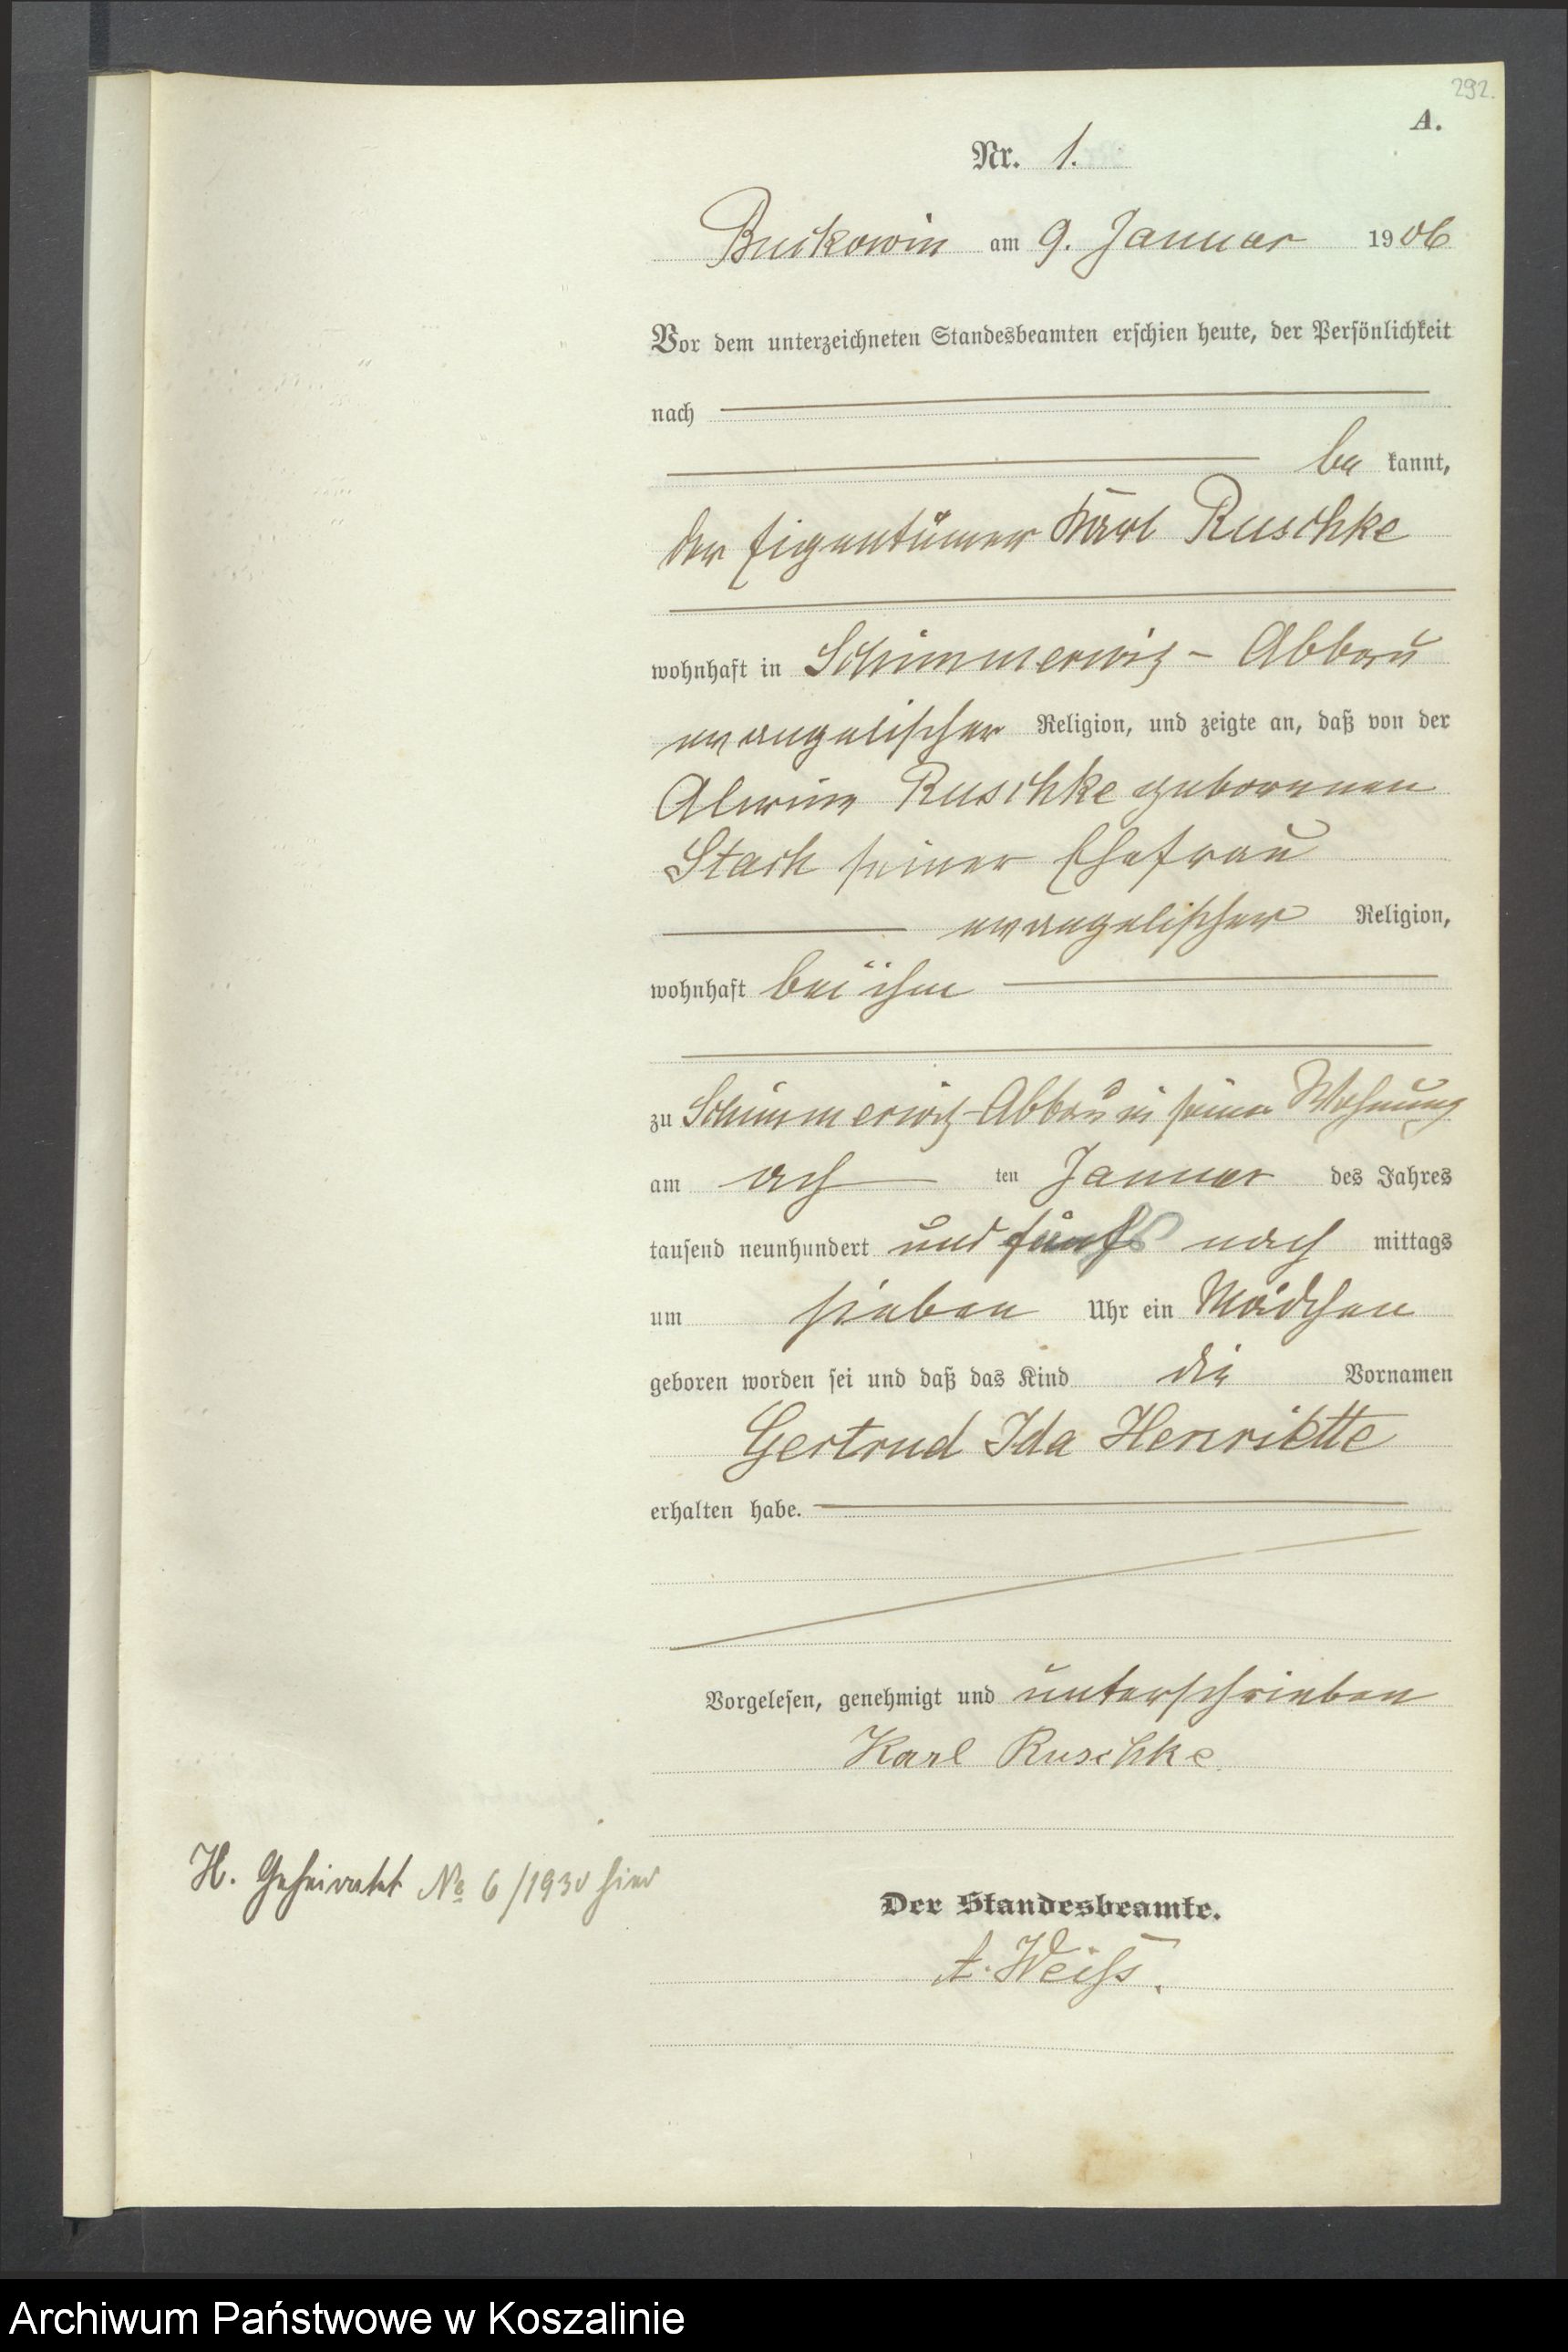 292.
A.
Nr. 1.
Buckowin am 9. Januar 1906
Vor dem unterzeichneten Standesbeamten erschien heute, der Persönlichkeit
nach
be kannt,
der Eigentümer Karl Ruschke
wohnhaft in Schimmerwitz - Abbau
evangelischer Religion, und zeigte an, daß von der
Alwine Ruschke geborenen
Stach seiner Ehefrau
evangelischer Religion,
wohnhaft bei ihm
zu Schimmerwitz-Abbau in seiner Wohnung
am ach ten Januar des Jahres
tausend neunhundert und fünf nach mittags
um sieben Uhr ein Mädchen
geboren worden sei und daß das Kind die Vornamen
Gertrud Ida Henriette
erhalten habe.
Vorgelesen, genehmigt und unterschrieben
Karl Ruschke
H. Geheiratet No 6/1930 hier
Der Standesbeamte.
A. Weiß.
Archiwum Państwowe w Koszalinie